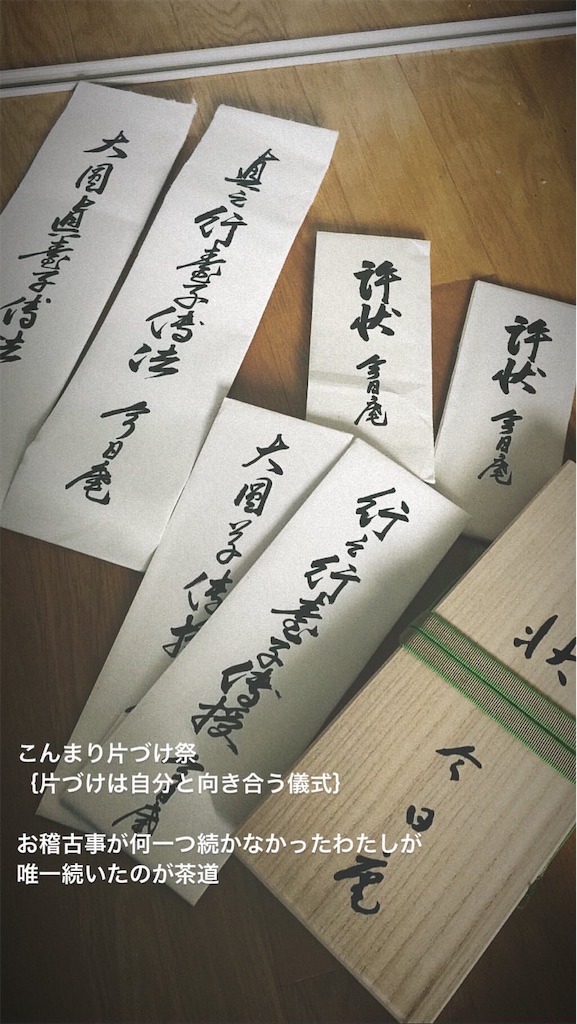 大圓眞臺子傳法
眞之行臺子傳法
今日庵
許状
今日庵
許状
今日庵
大圓草傳授
行之行臺子傳授
今日庵
状
今日庵
こんまり片づけ祭
｛片づけは自分と向き合う儀式｝
お稽古事が何一つ続かなかったわたしが
唯一続いたのが茶道